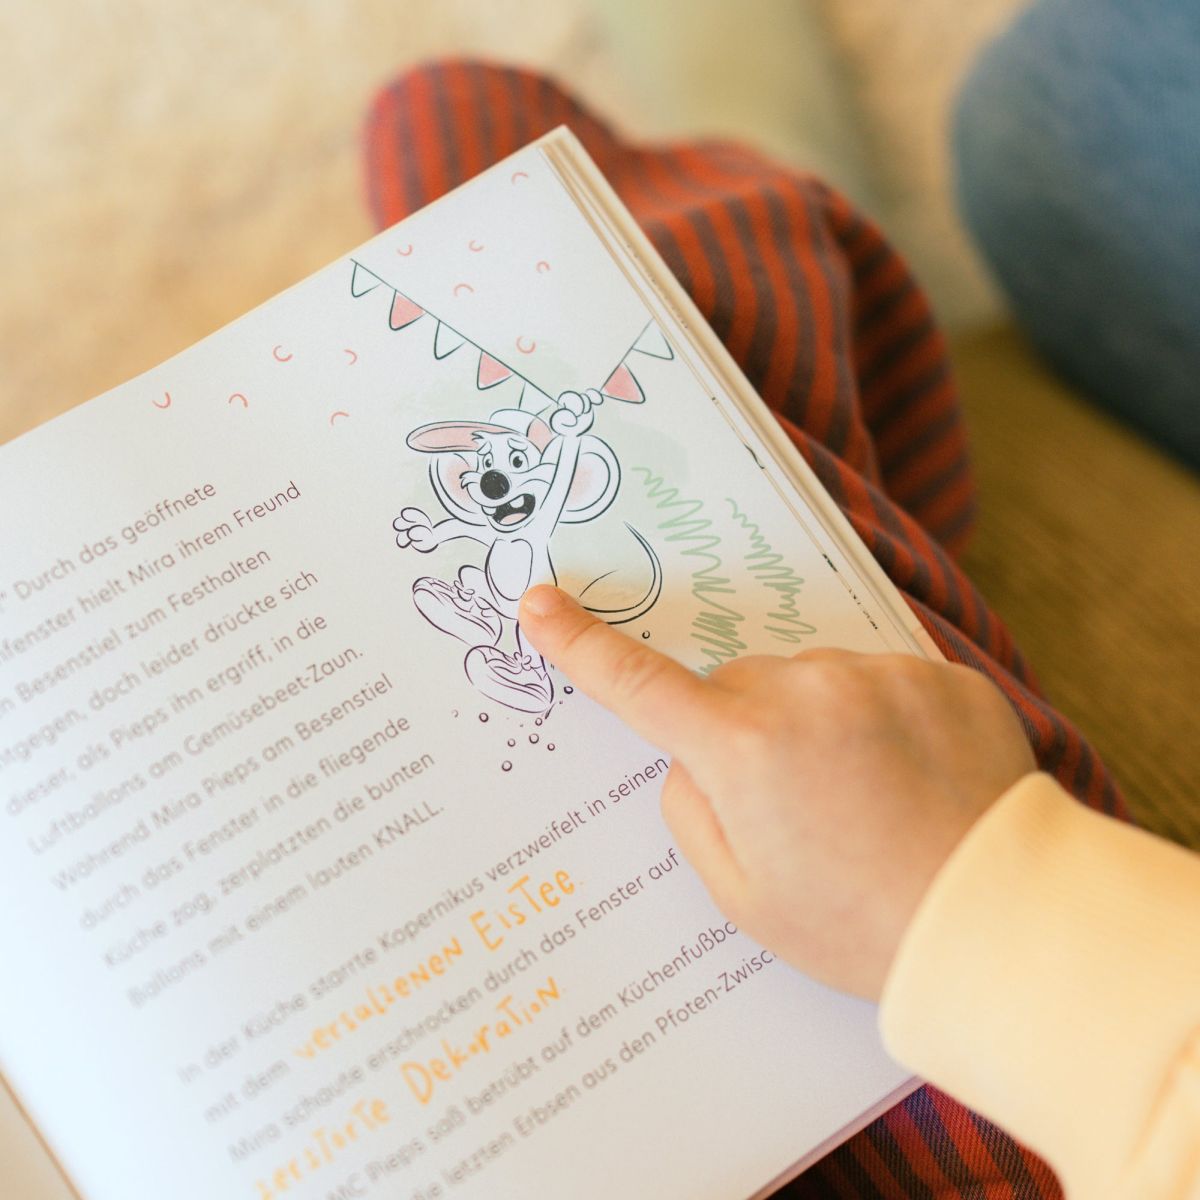 Durch das geöffnete
hielt Mira ihrem Freund
Besenstiel zum Festhalten
doch leider drückte sich
dieser, als Pieps ihn ergriff, in die
Luftballons am Gemüsebeet-Zaun.
Während Mira Pieps am Besenstiel
durch das Fenster in die fliegende
Küche zog, zerplatzten die bunten
Ballons mit einem lauten KNALL.
In der Küche starrte Kopernikus verzweifelt in seinen
mit dem versalzenen Eistee.
Mira schaute erschrocken durch das Fenster auf
zerstörte Dekoration.
MC Pieps saß betrübt auf dem
die letzten Erbsen aus den